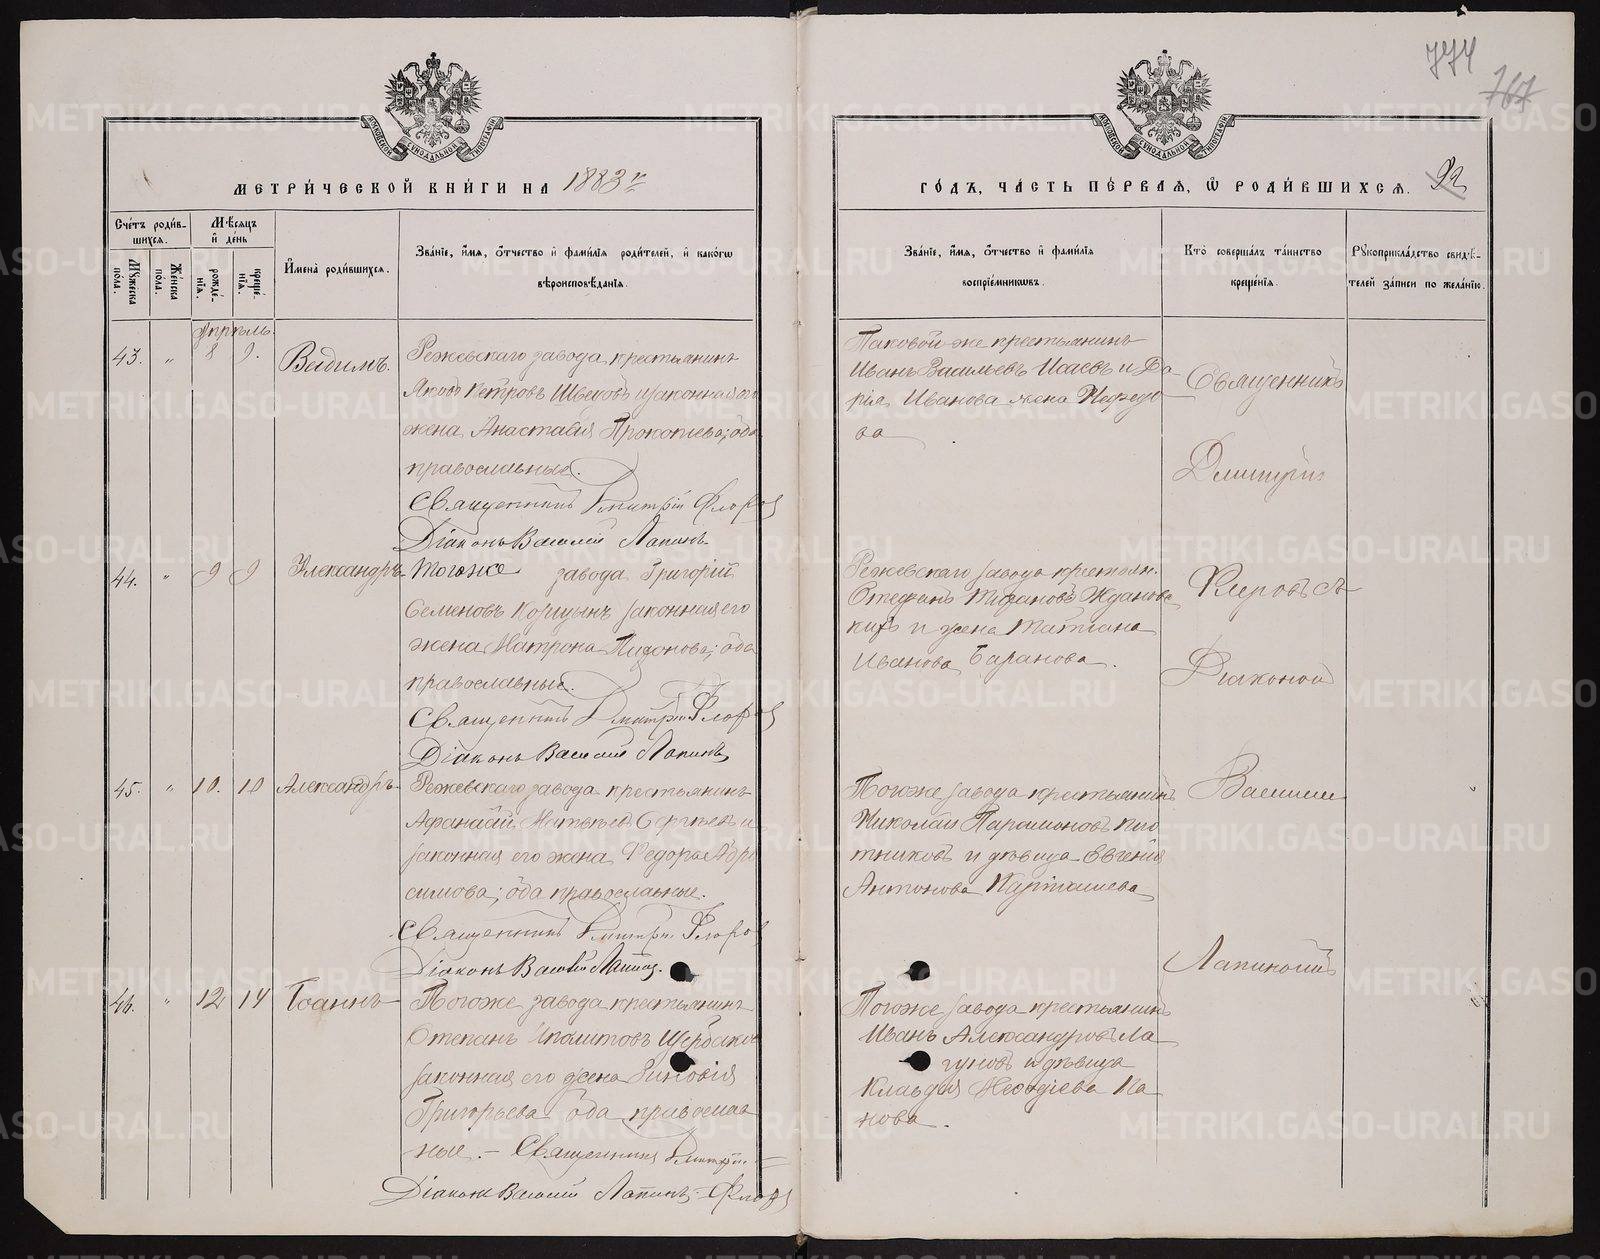 774
767
МОСКОВСКОЙ СѴНОДАЛЬНОЙ ТИПОГРАФІИ
МОСКОВСКОЙ СѴНОДАЛЬНОЙ ТИПОГРАФІИ
МЕТРИ́ЧЕСКОЙ КНИ́ГИ НА 1883 г
ГО́ДЪ, ЧА́СТЬ ПЕ́РВАЯ, Ѽ РОДИ́ВШИХСЯ. 92
Сче́тъ роди́в-
шихся.
Му́жеска по́ла.
Же́нска по́ла.
Мѣ́сяцъ
и҆ де́нь
рожде́-нія.
креще́-нія.
И҆мена̀ роди́вшихся.
Зва́ніе, и҆́мя, ѻ҆́тчество и҆ фами́лія роди́телей, и҆ како́гѡ
вѣроисповѣ́данія.
Зва́ніе, и҆́мя, ѻ҆́тчество и҆ фами́лія
воспріе́мникѡвъ.
Кто̀ соверша́лъ та́инство
креще́нія.
Рꙋкоприкла́дство свидѣ́-
телей за́писи по жела́нію.
Апрѣль.
43. " 8 9. Вадимъ.
Режевскаго завода крестьянинъ
Яковъ Петровъ Швецовъ и законная его
жена Анастасія Прокопьева; оба
православные.
Священникъ Дмитрій Флоровъ
Діаконъ Василій Лапинъ
Таковой-же крестьянинъ
Иванъ Васильевъ Исаевъ и Да-
рья Иванова жена
ва
Священникъ
Дмитрій
44. " 9 9 Александръ
Тогоже завода Григорій
Семеновъ законная его
жена Матрона оба
православные.
Священникъ Дмитрій Флоровъ
Діаконъ Василій Лапинъ
Режевскаго завода крестьян.
Стефанъ
и жена Татіана
Иванова Баранова.
Флоровъ съ
Діакономъ
45. " 10. 10 Александръ
Режевскаго завода крестьянинъ
Афанасій Матвѣевъ Сергѣевъ и
законная его жена Федора
симова; оба православные.
Священникъ Дмитрій Флоровъ
Діаконъ Василій Лапинъ.
Тогоже завода крестьянинъ
Николай Парамоновъ Пло
тниковъ и дѣвица Евгенія
Антонова Карташева
Василіемъ
Лапинымъ
46. " 12 14 Іоаннъ
Тогоже завода крестьянинъ
Степанъ Иполитовъ Щербаковъ
законная его жена Зиновія
Григорьева оба православ
ные. – Священникъ Дмитрій
Діаконъ Василій Лапинъ – Флоровъ
Тогоже завода крестьянинъ
Иванъ Александровъ Ла
гуновъ и дѣвица
Клавдія Мефодіева Па
нова.
METRIKI.GASO-URAL.RU